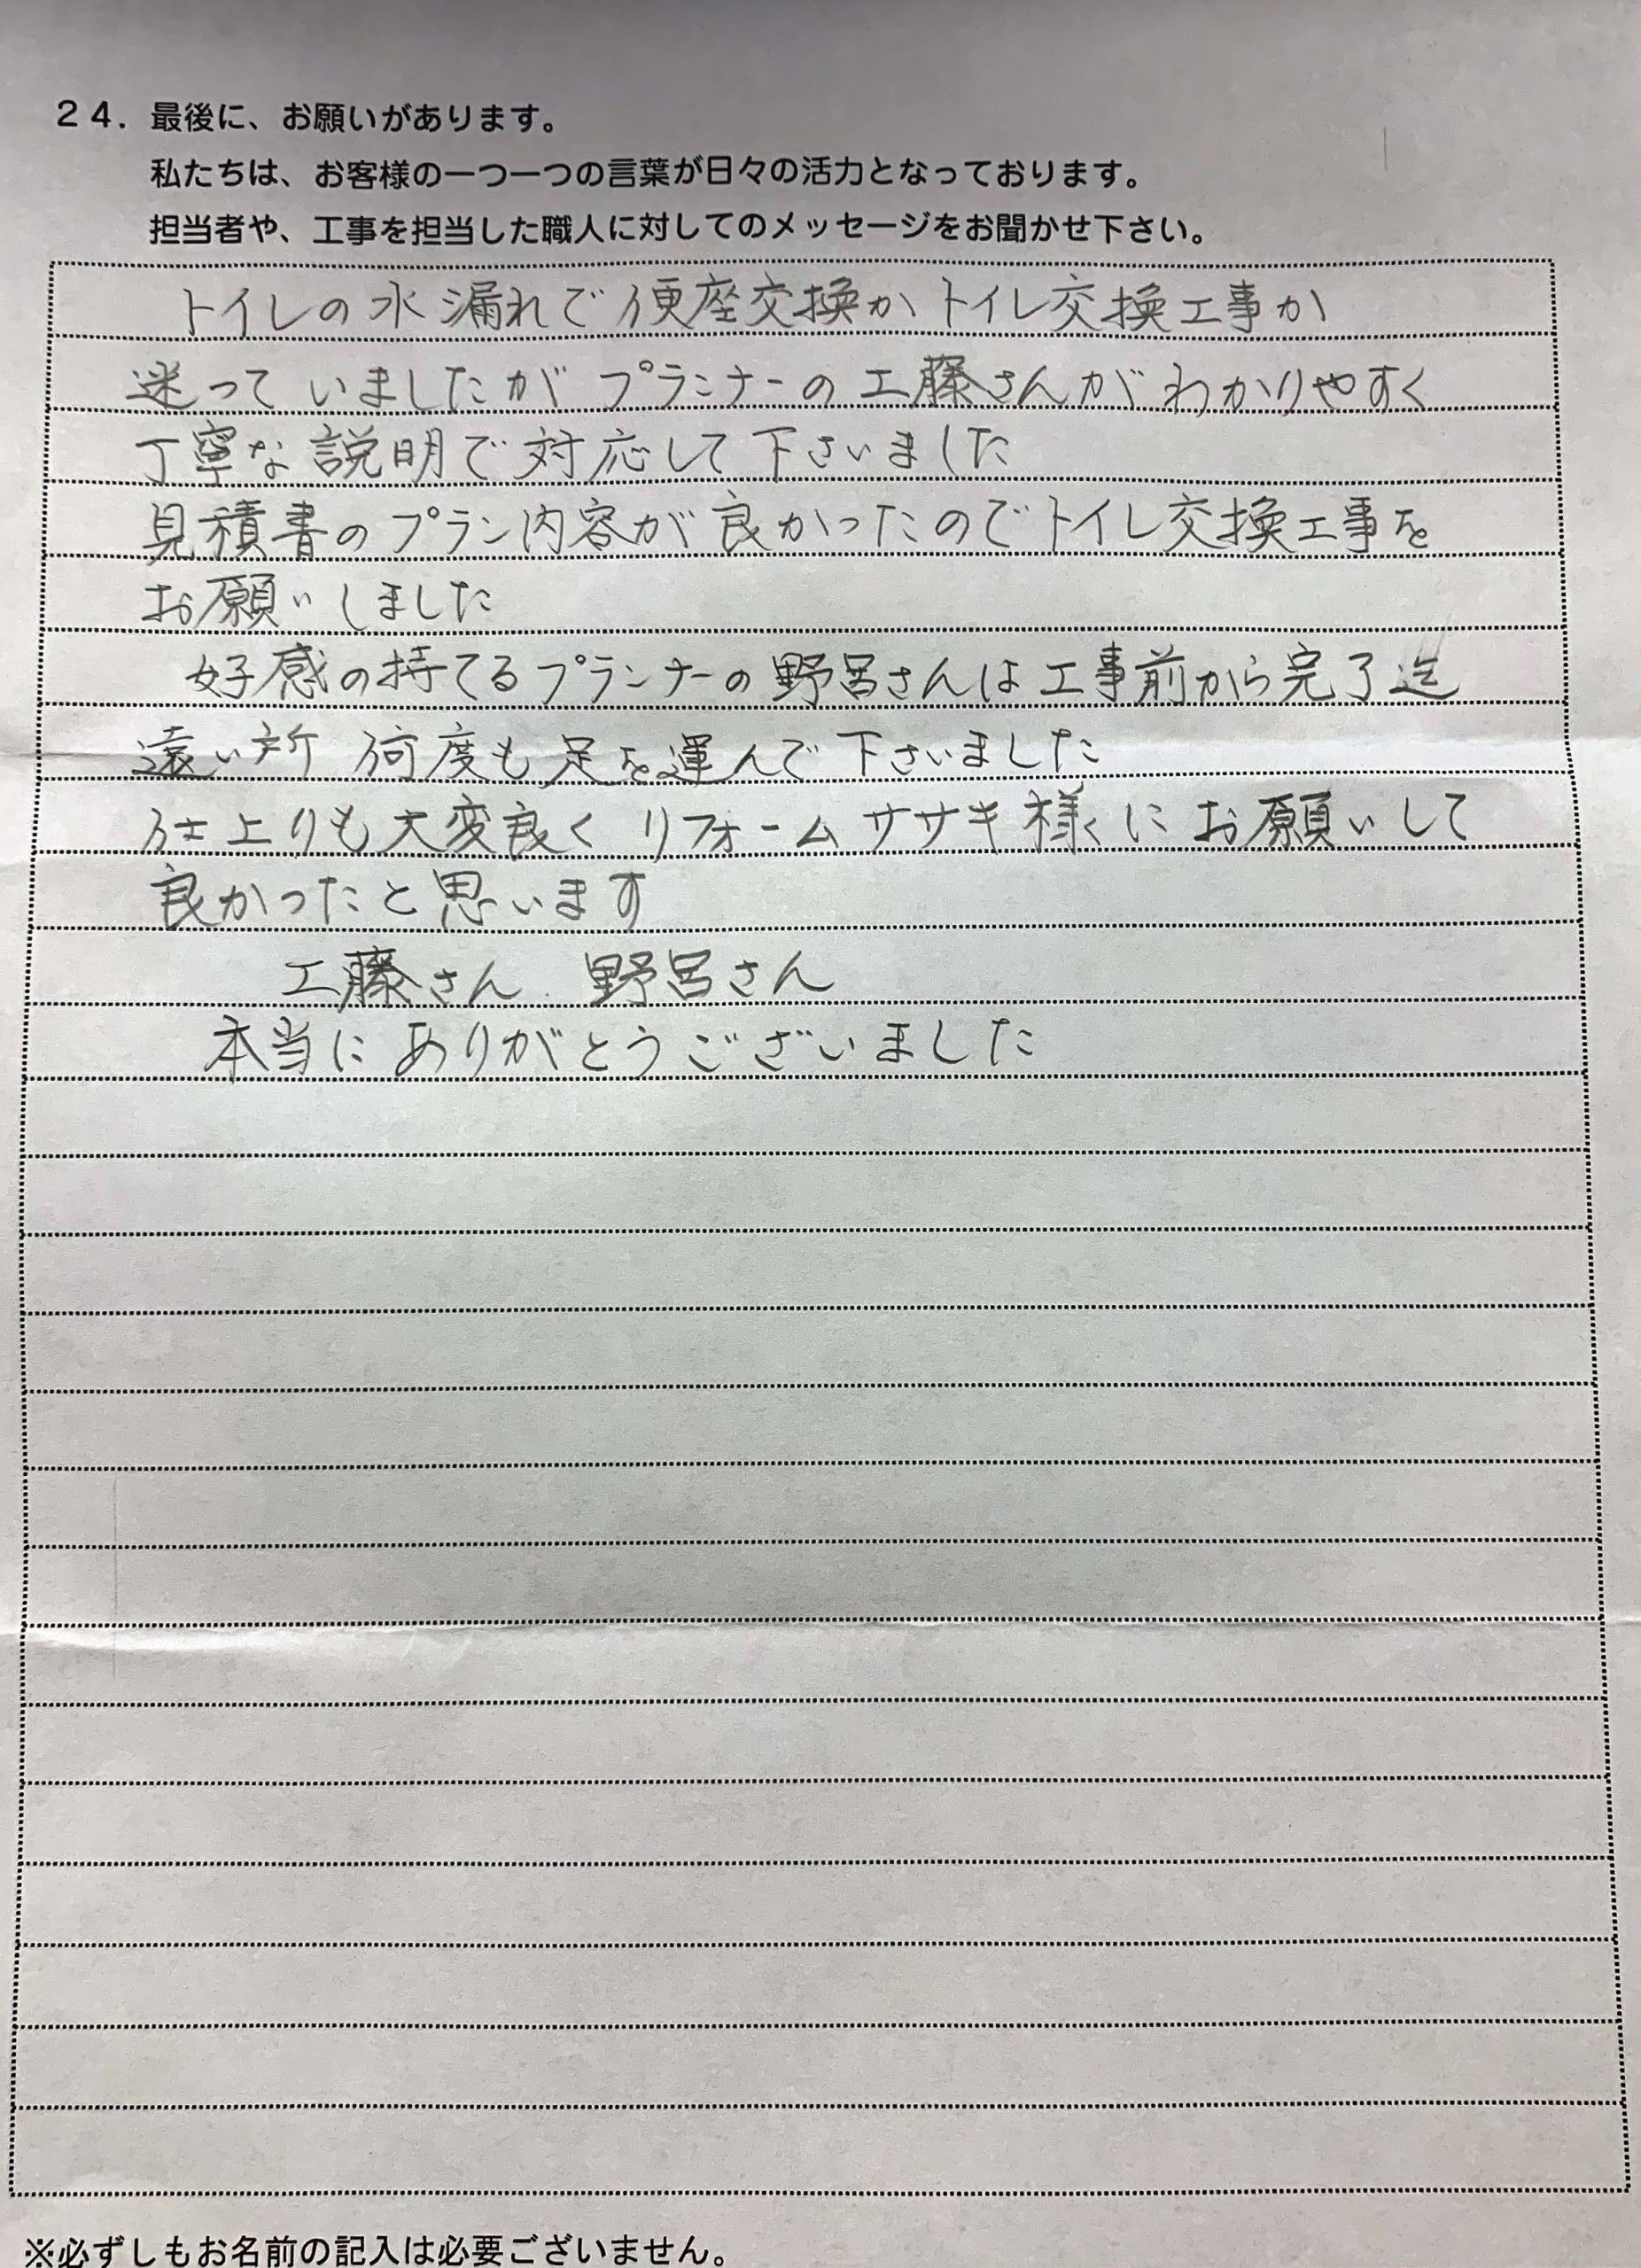 24. 最後に、お願いがあります。
私たちは、お客様の一つ一つの言葉が日々の活力となっております。
担当者や、工事を担当した職人に対してのメッセージをお聞かせ下さい。
トイレの水漏れで便座交換かトイレ交換工事か
迷っていましたがプランナーの工藤さんがわかりやすく
丁寧な説明で対応して下さいました
見積書のプラン内容が良かったのでトイレ交換工事を
お願いしました
好感の持てるプランナーの野呂さんは工事前から完了迄
遠い所 何度も足を運んで下さいました
仕上りも大変良く リフォームササキ様にお願いして
良かったと思います
工藤さん 野呂さん
本当にありがとうございました
※必ずしもお名前の記入は必要ございません。